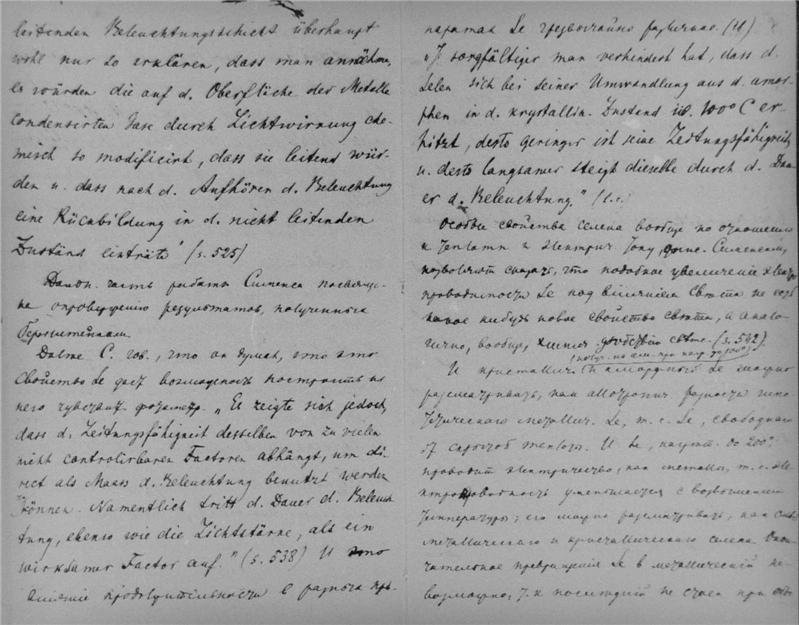 leitenden Beleuchtungsschicht überhaupt
wohl nur so erklären, dass man annähme,
es würden die auf d. Oberfläche der Metalle
condensirten Gase durch Lichtwirkung che-
misch so modificirt, dass sie leitend wür-
den u. dass nach d. Aufhören d. Beleuchtung
eine Rückbildung in d. nicht leitenden
Zustand eintrete" (s. 525)
часть работы Сименса посвяще-
на опровержению результатов, полученных
Далее С. гов., что он думал, что это
свойство Se даст возможность построить из
него фотометр. „Es zeigte sich jedoch,
dass d. Leitungsfähigkeit desselben von zu vielen
nicht controlirbaren Factoren abhängt, um di-
rect als Maass d. Beleuchtung benutzt werden
können. Namentlich tritt d. Dauer d. Beleuch-
tung, ebenso wie die Lichtstärke, als ein
wirksamer Factor auf." (s. 538) И это
влияние продолжительности в разных пре-
паратах Se чрезвычайно различно. (ib)
„J sorgfältiger man verhindert hat, dass d.
Selen sich bei seiner Umwandlung aus d. amor-
phen in d. krystallin. Zustand üb. 100° C er-
hitzt, desto geringer ist seine Leitungsfähigkeit
u. desto langsamer steigt dieselbe durch d. Dau-
er d. Beleuchtung." (l.c.)
Особые свойства селена вообще по отношению
к и электрич. току,
позволяют сказать, что подобное увеличение
проводимости Se под влиянием света не есть
какое нибудь новое свойство света, а анало-
гично, вообще, химич. действию света. (s. 542)
И кристаллич. и аморфный Se можно
рассматривать, как аллотропич. разность
металлич. Se, т. е. Se, свободного
от теплоты. И Se, нагрет. до 200°
проводит электричество, как металлы, т. е. эле-
ктропроводность уменьшается с возвышением
температуры; его можно рассматривать, как
металлического и кристаллического селена. Окон-
чательное превращение Se в металлический не-
возможно, т. к последний не